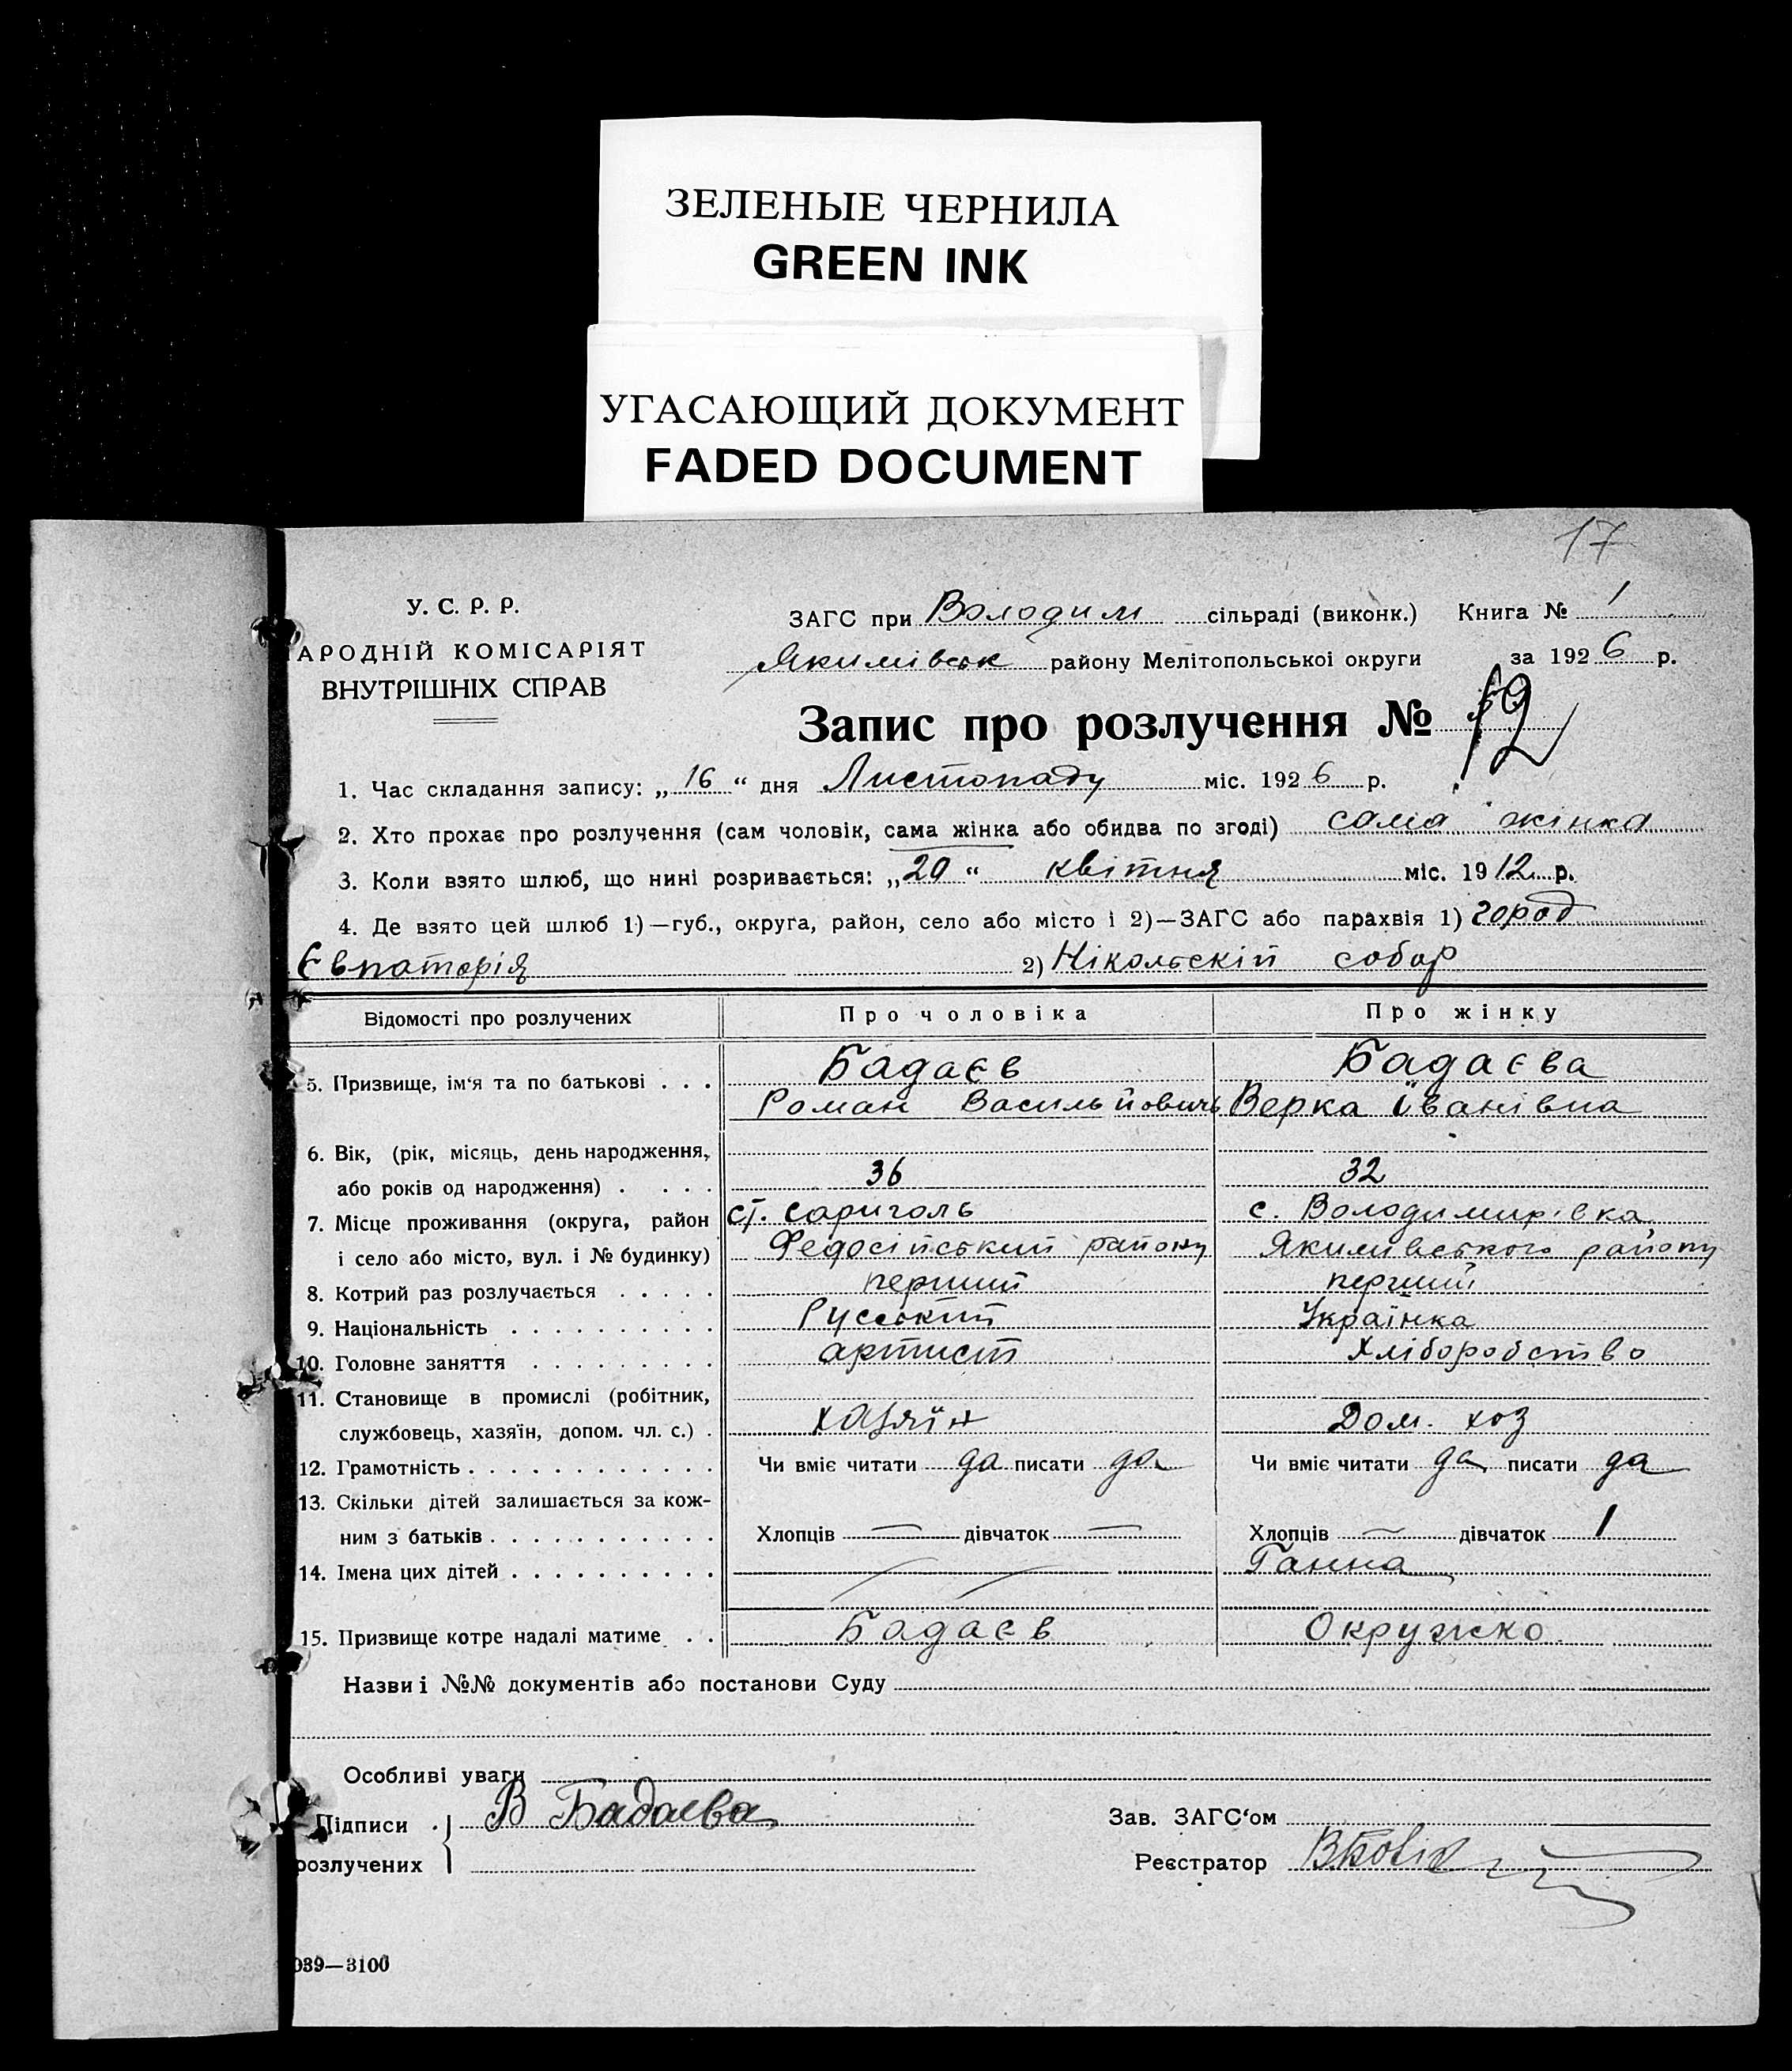 ЗЕЛЕНЫЕ ЧЕРНИЛА
GREEN INK
УГАСАЮЩИЙ ДОКУМЕНТ
FADED DOCUMENT
17
У. С. Р. Р.
АРОДНІЙ КОМІСАРІЯТ
ВНУТРІШНІХ СПРАВ
ЗАГС при Володим сільраді (виконк.) Книга № 1
Якимівськ району Мелітопольської округи за 1926 р.
Запис про розлучення № 12
1. Час складання запису: „16“ дня Листопаду міс. 1926 р.
2. Хто прохає про розлучення (сам чоловік, сама жінка або обидва по згоді) сама жінка
3. Коли взято шлюб, що нині розривається: „20“ квітня міс. 1912 р.
4. Де взято цей шлюб 1)—губ., округа, район, село або місто і 2)—ЗАГС або парахвія 1) город
Євпаторія 2) Нікольскій собор
Відомості про розлучених Про чоловіка Про жінку
5. Призвище, ім‘я та по батькові . . . Бадаєв Бадаєва
Роман Васильйовичь Верка Іванівна
6. Вік, (рік, місяць, день народження,
або років од народження) . . . . 36 32
7. Місце проживання (округа, район ст. Сариголь с. Володимирівка
і село або місто, вул. і № будинку) Федосійський району Якимівського району
8. Котрий раз розлучається . . . . . перший перший
9. Національність . . . . . . . . . . Руський Українка
10. Головне заняття . . . . . . . . . артист Хліборобство
11. Становище в промислі (робітник,
службовець, хазяїн, допом. чл. с.) . хазяїн Дом. хоз
12. Грамотність . . . . . . . . . . . . Чи вміє читати да писати да Чи вміє читати да писати да
13. Скільки дітей залишається за кож-
ним з батьків . . . . . . . . . . . Хлопців — дівчаток — Хлопців — дівчаток 1
14. Імена цих дітей . . . . . . . . . . Ганна
15. Призвище котре надалі матиме . . Бадаєв Окружко
Назви і №№ документів або постанови Суду
Особливі уваги
Підписи В Бадаева Зав. ЗАГС‘ом
розлучених Реєстратор
039—3100